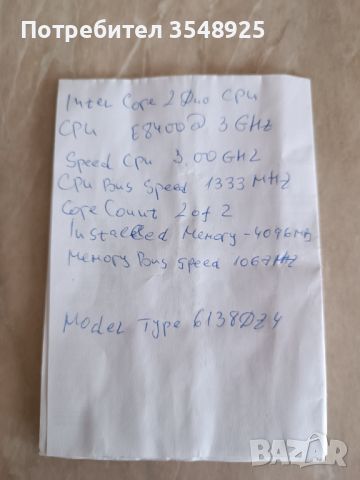 Потребител 3548925
Intel Core 2 Duo CPU
CPU E8400@ 3GHz
Speed CPU 3.00GHZ
CPU Bus Speed 1333 MHZ
Core Count 2 of 2
Installed Memory - 4096Mb
Memory Bus Speed 1067MHZ
Model Type 6138DZ4
BAZAR